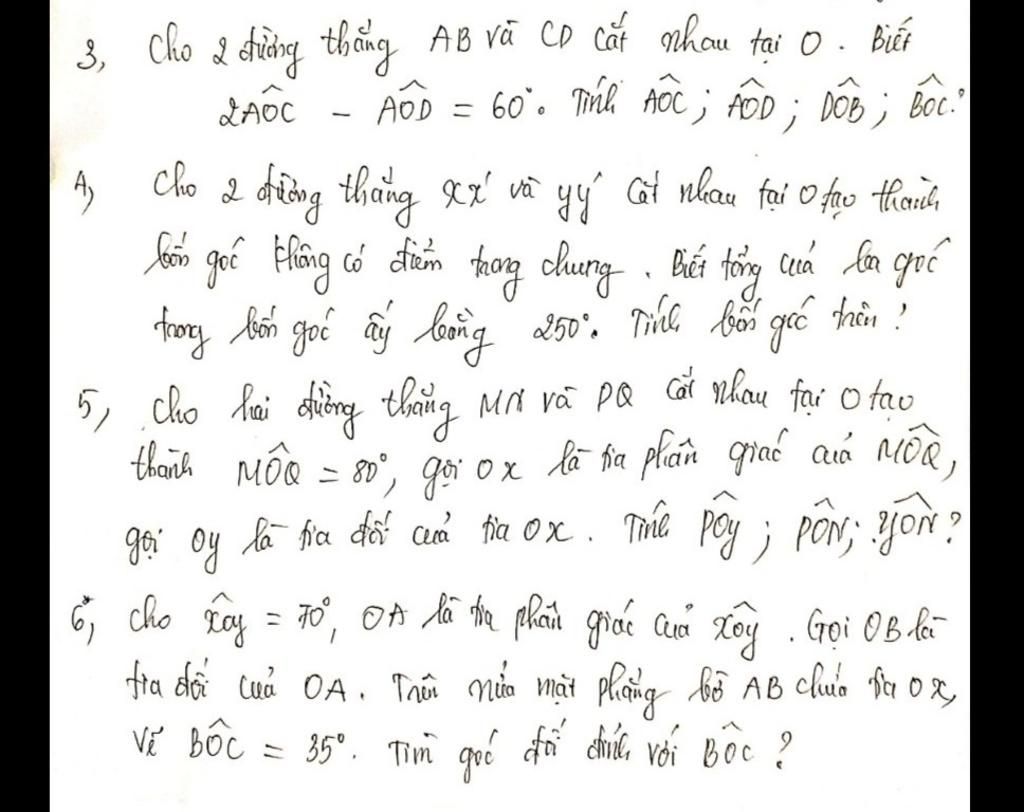 3, Cho 2 đường thẳng AB và CD cắt nhau tại O. Biết
2AÔC - AÔD = 60°. Tính AÔC; AÔD; DÔB; BÔC?
4, Cho 2 đường thẳng xx' và yy' cắt nhau tại O tạo thành
bốn góc không có điểm trong chung. Biết tổng của ba góc
trong bốn góc ấy bằng 250°. Tính bốn góc trên?
5, Cho hai đường thẳng MN và PQ cắt nhau tại O tạo
thành MÔQ = 80°, gọi Ox là tia phân giác của MÔQ,
gọi Oy là tia đối của tia Ox. Tính PÔy; PÔN; yÔN?
6*, Cho xÔy = 70°, OA là tia phân giác của xÔy. Gọi OB là
tia đối của OA. Trên nửa mặt phẳng bờ AB chứa tia Ox,
Vẽ BÔC = 35°. Tìm góc đối đỉnh với BÔC?